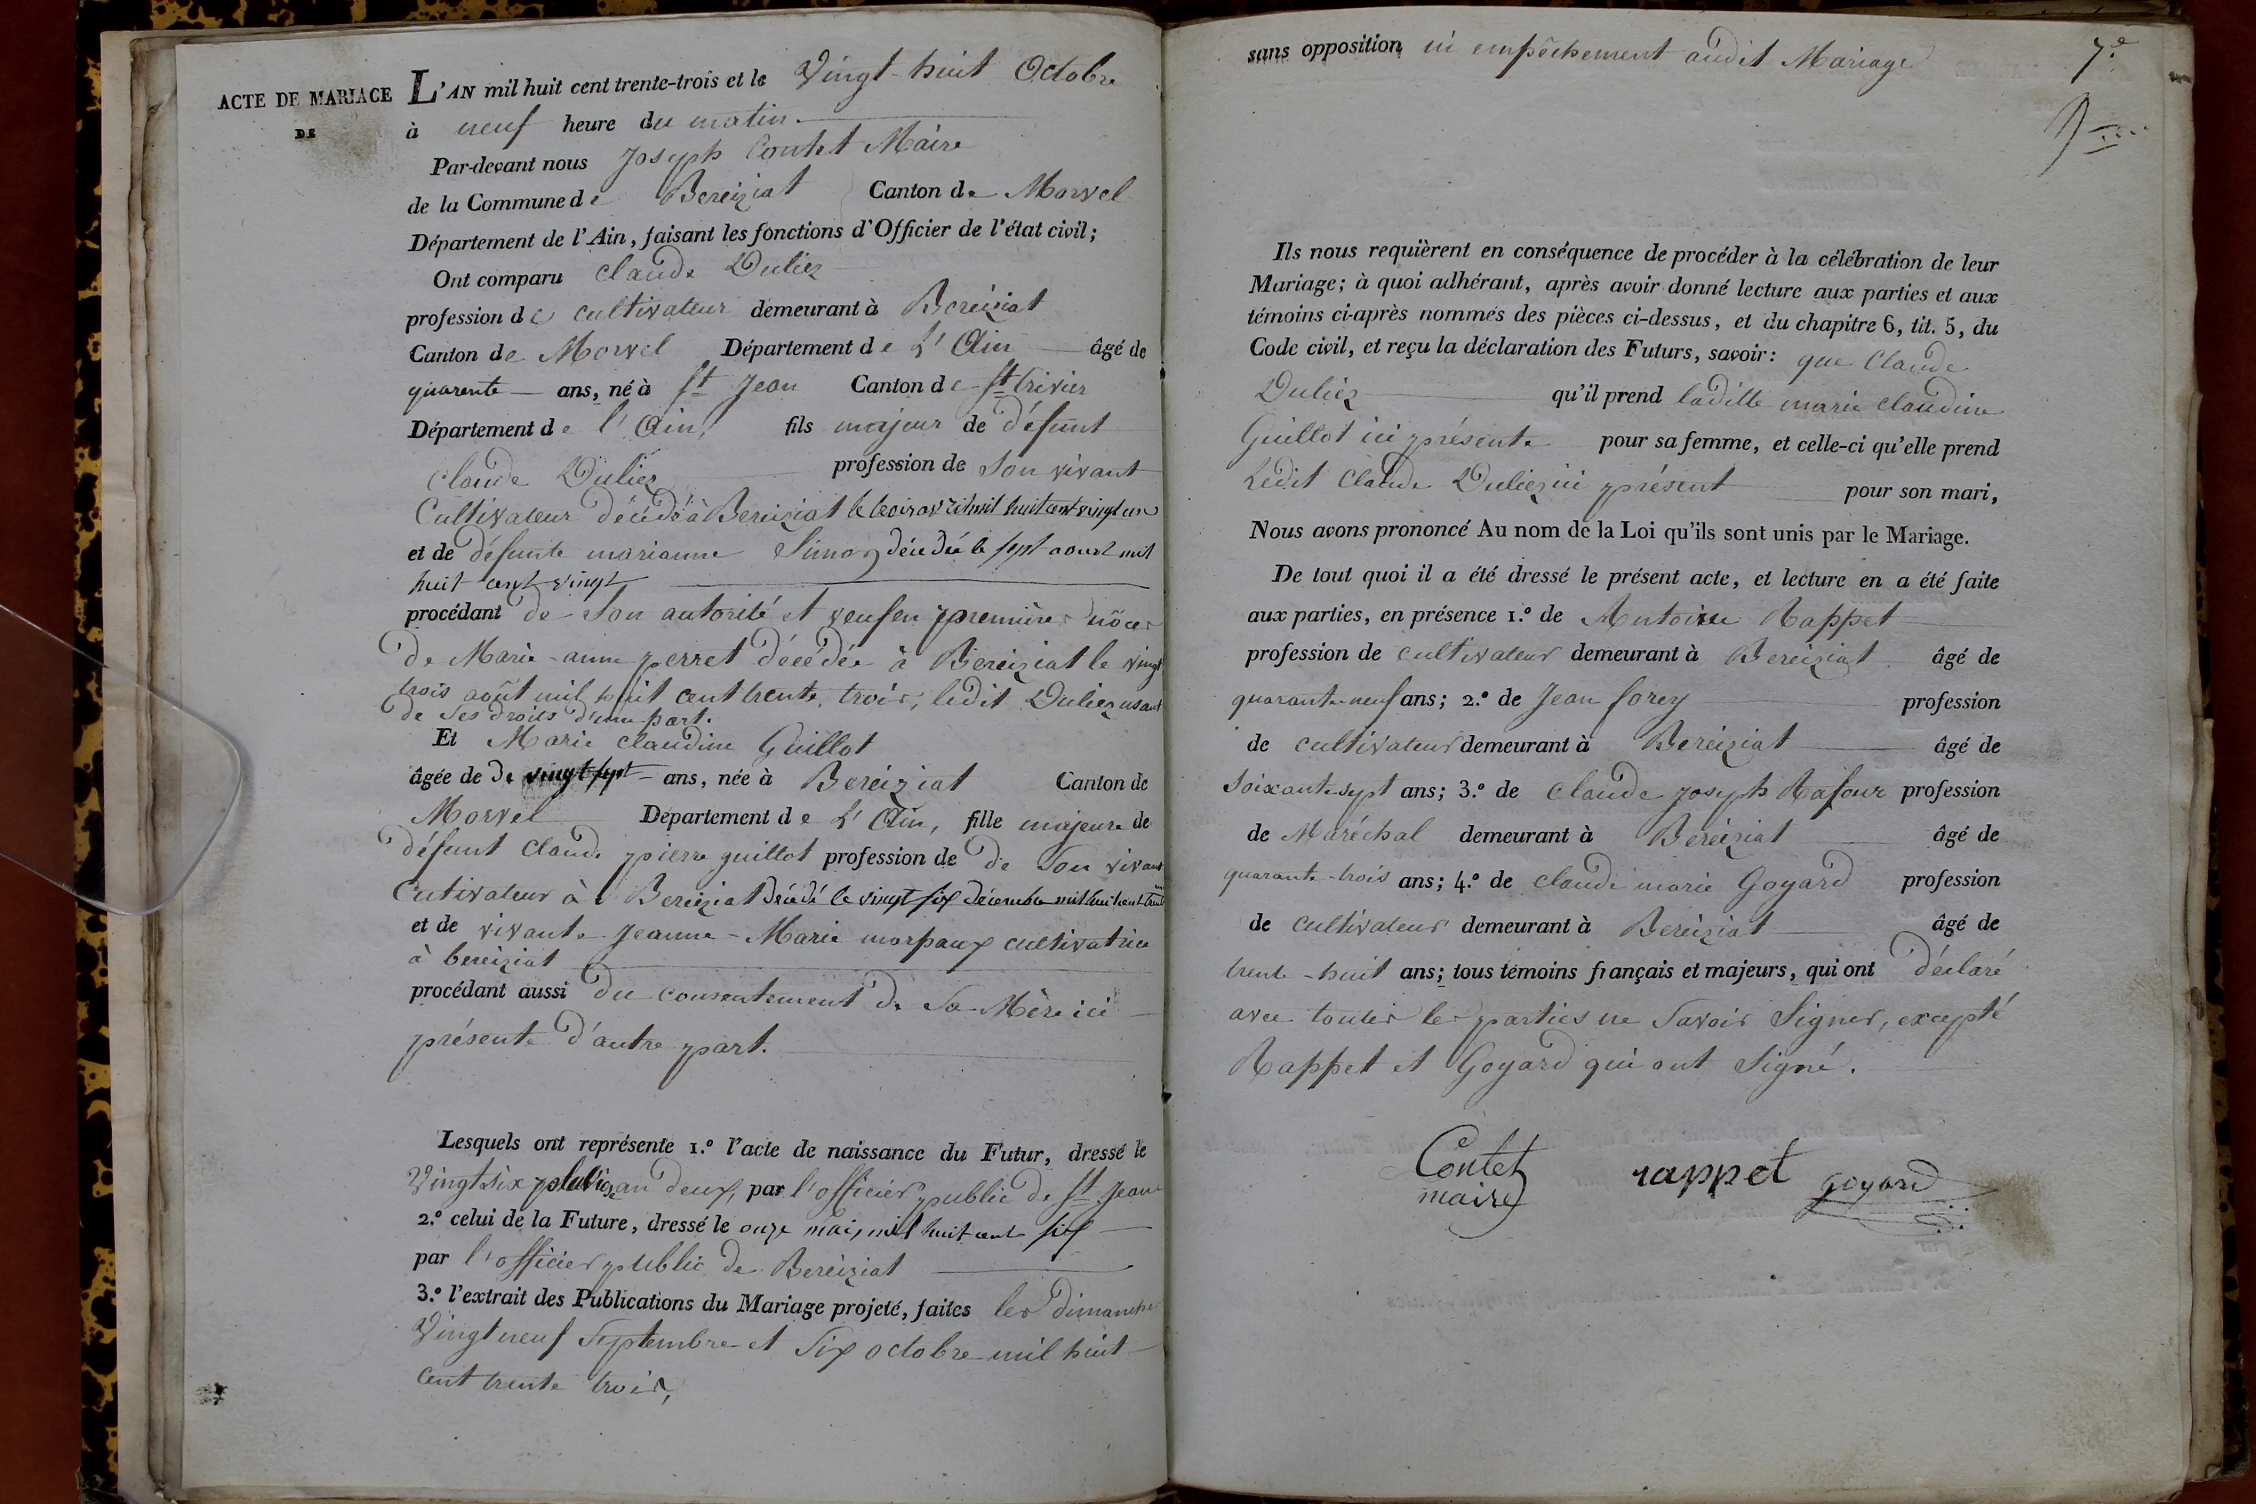 ACTE DE MARIAGE
DE
L'AN mil huit cent trente-trois et le Vingt-huit Octobre
à neuf heure du matin.
Par-devant nous Joseph Contet Maire
de la Commune de Bereiziat Canton de Morvel
Département de l'Ain, faisant les fonctions d'Officier de l'état civil;
Ont comparu Claude Duliez
profession de cultivateur demeurant à Bereiziat
Canton de Morvel Département de L'Ain âgé de
quarente ans, né à St Jean Canton de St trivier
Département de l'Ain, fils majeur de défunt
Claude Duliez profession de son vivant
Cultivateur décédé à Bereiziat le trois avril mil huit cent vingt un
et de défunte marianne Simon décédée le sept aoust mil
huit cent vingt
procédant de son autorité et veuf en premières nôces
de Marie-anne perret décédée à Bereiziat le vingt
trois août mil huit cent trente trois, ledit Duliez usant
de ses droits d'une part.
Et Marie claudine Guillot
âgée de de vingt sept ans, née à Bereiziat Canton de
Morvel Département de L'Ain, fille majeure de
défunt Claude pierre guillot profession de de son vivant
Cutivateur à Bereiziat décédé le vingt six décembre mil huit cent
et de vivante Jeanne-Marie morpaux cultivatrice
à bereiziat
procédant aussi du consentement de sa Mère ici
présente d'autre part.
Lesquels ont représente 1.º l'acte de naissance du Futur, dressé le
Vingt six pluviose an deux, par l'officier public de St Jean
2.º celui de la Future, dressé le onze mai, mil huit cent six
par l'officier public de Bereiziat
3.º l'extrait des Publications du Mariage projeté, faites les dimanches
Vingt neuf Septembre et six octobre mil huit
cent trente trois,
sans opposition ni empêchement audit Mariage
7.e
Ils nous requièrent en conséquence de procéder à la célébration de leur
Mariage; à quoi adhérant, après avoir donné lecture aux parties et aux
témoins ci-après nommés des pièces ci-dessus, et du chapitre 6, tit. 5, du
Code civil, et reçu la déclaration des Futurs, savoir: que Claude
Duliez qu'il prend ladite marie claudine
Guillot ici présente pour sa femme, et celle-ci qu'elle prend
Ledit Claude Duliez ici présent pour son mari,
Nous avons prononcé Au nom de la Loi qu'ils sont unis par le Mariage.
De tout quoi il a été dressé le présent acte, et lecture en a été faite
aux parties, en présence 1.º de Antoine Rappet
profession de cultivateur demeurant à Bereiziat âgé de
quarante neuf ans; 2.º de Jean forey profession
de cultivateur demeurant à Bereiziat âgé de
soixante sept ans; 3.º de Claude Joseph Rafour profession
de Maréchal demeurant à Bereiziat âgé de
quarante-trois ans; 4.º de claude marie Goyard profession
de cultivateur demeurant à Bereiziat âgé de
trente-huit ans; tous témoins français et majeurs, qui ont déclaré
avec toutes les parties ne savoir signer, excepté
Rappet et Goyard qui ont signé.
Contet
maire
rappet
goyard